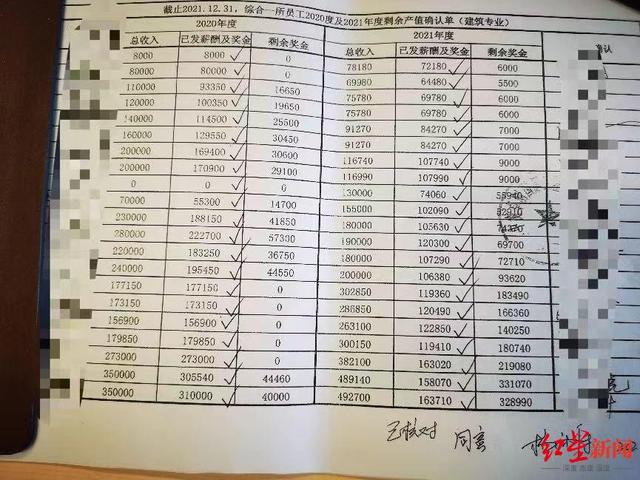 截止2021.12.31，综合一所员工2020度及2021年度剩余产值确认单（建筑专业）
2020年度 2021年度
总收入 已发薪酬及奖金 剩余奖金 总收入 已发薪酬及奖金 剩余奖金
8000 8000 0 78180 72180 6000
80000 80000 0 69980 64480 5500
110000 93350 16650 75780 69780 6000
120000 100350 19650 75780 69780 6000
140000 114500 25500 91270 84270 7000
160000 129550 30450 91270 84270 7000
200000 169400 30600 116740 107740 9000
200000 170900 29100 116990 107990 9000
0 0 0 130000 74060 55940
70000 55300 14700 155000 102090 52910
230000 188150 41850 180000 105630 74370
280000 222700 57300 190000 120300 69700
220000 183250 36750 180000 107290 72710
240000 195450 44550 200000 106380 93620
177150 177150 0 302850 119360 183490
173150 173150 0 286850 120490 166360
156900 156900 0 263100 122850 140250
179850 179850 0 300150 119410 180740
273000 273000 0 382100 163020 219080
350000 305540 44460 489140 158070 331070
350000 310000 40000 492700 163710 328990
已核对 同意
红星新闻
深度 态度 温度